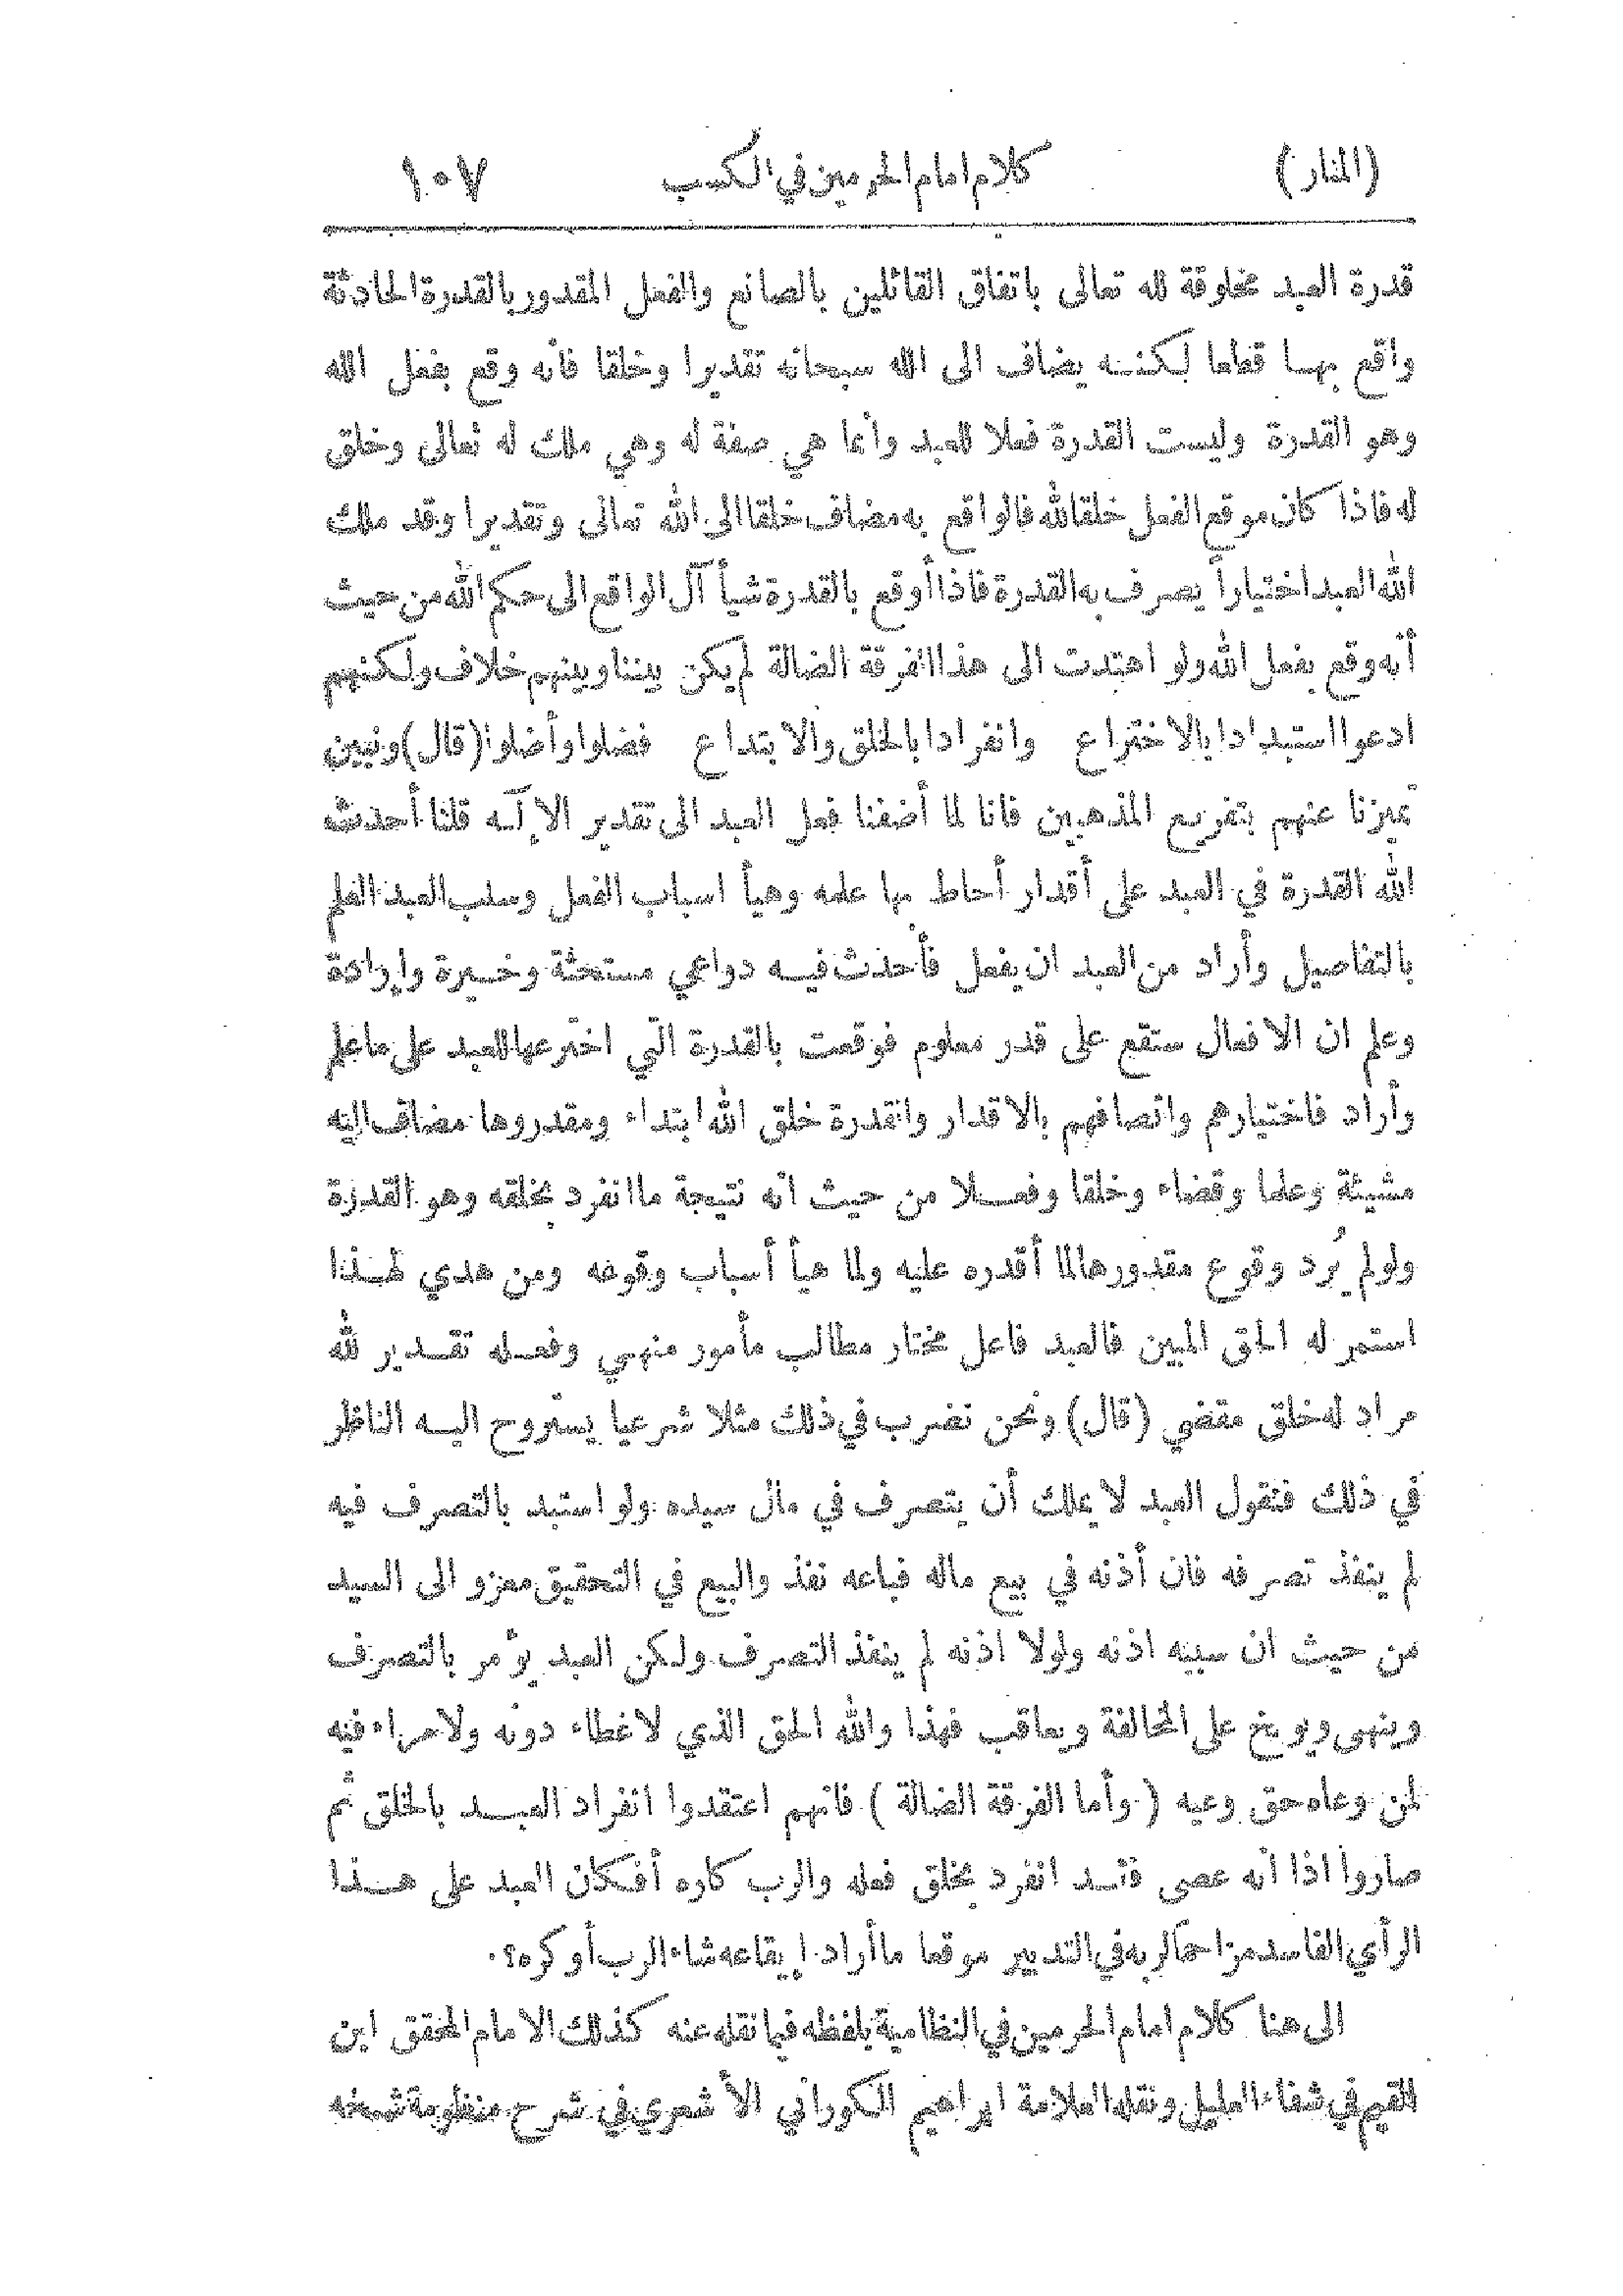 (المنار) كلام امام الحرمين في الكسب ١٠٧
قدرة العبد مخلوقة لله تعالى باتفاق القائلين بالصانع والفعل المقدور بالقدرة الحادثة
واقع بهـا قطعا لكنـه يضاف الى الله سبحانه تقديرا وخلقا فانه وقع بفعل الله
وهو القدرة وليست القدرة فعلا للعبد وانما هي صفة له وهي ملك له تعالى وخلق
له فاذا كان موقع الفعل خلقا لله فالواقع به مضاف خلقا الى الله تعالى وتقديرا وقد ملك
الله العبد اختياراً يصرف به القدرة فاذا أوقع بالقدرة شيأ آل الواقع الى حكم الله من حيث
أنه وقع بفعل الله ولو اهتدت الى هذا الفرقة الضالة لم يكن بيننا وبينهم خلاف ولكنهم
ادعوا استبدادا بالاختراع وانفرادا بالخلق والابتداع فضلوا وأضلوا (قال) ونبين
تميزنا عنهم بتفريع المذهبين فانا لما أضفنا فعل العبد الى تقدير الإلـه قلنا أحدث
الله القدرة في العبد على أقدار أحاط بها علمه وهيأ اسباب الفعل وسلب العبد العلم
بالتفاصيل وأراد من العبد ان يفعل فأحدث فيـه دواعي مستحثة وخـيرة وإرادة
وعلم ان الافعال ستقع على قدر معلوم فوقعت بالقدرة التي اخترعها للعبد على ما علم
وأراد فاختيارهم واتصافهم بالاقدار والقدرة خلق الله ابتداء ومقدروها مضاف اليه
مشيئة وعلما وقضاء وخلقا وفعـلا من حيث انه نتيجة ما انفرد بخلقه وهو القدرة
ولو لم يُرد وقوع مقدورها لما أقدره عليه ولما هيأ أسباب وقوعه ومن هدي لهـذا
استمر له الحق المبين فالعبد فاعل مختار مطالب مأمور منهـي وفعـله تقـدير لله
مراد له خلق مقضي (قال) ونحن نضرب في ذلك مثلا شرعيا يستروح اليـه الناظر
في ذلك فنقول العبد لا يملك أن يتصرف في مال سيده ولو استبد بالتصرف فيه
لم ينفذ تصرفه فان أذنه في بيع ماله فباعه نفذ والبيع في التحقيق معزو الى السيد
من حيث ان سببه اذنه ولولا اذنه لم ينفذ التصرف ولكن العبد يؤمر بالتصرف
وينهى ويوبخ على المخالفة ويعاقب فهذا والله الحق الذي لا غطاء دونه ولا مراء فيه
لمن وعاه حق وعيه (وأما الفرقة الضالة) فانهم اعتقدوا انفراد العبـد بالخلق ثم
صاروا اذا انه عصى فقـد انفرد بخلق فعله والرب كاره أفكان العبد على هـذا
الرأي الفاسد مزاحما لربه في التدبير موقعا ما أراد إيقاعه شاء الرب أو كره؟.
الى هنا كلام امام الحرمين في النظامية بلفظه فيما نقله عنه كذلك الامام المحقق ابن
القيم في شفاء العليل ونقله العلامة ابراهيم الكوراني الأشعري في شرح منظومة شيخه